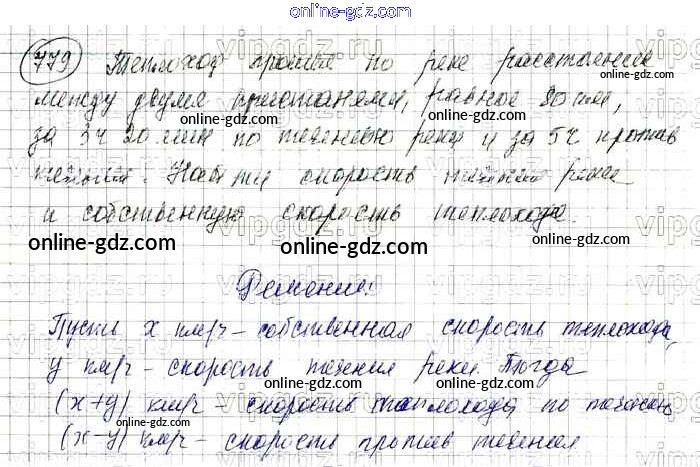 online-gdz.com
779 Теплоход прошел по реке расстояние
между двумя пристанями, равное 80 км,
за 3ч 20 мин по течению реки и за 5ч против
течения. Найти скорость течения реки
и собственную скорость теплохода.
online-gdz.com online-gdz.com online-gdz.com
Решение:
Пусть х км/ч - собственная скорость теплохода,
у км/ч - скорость течения реки. Тогда
(х+у) км/ч - скорость теплохода по течению
(х-у) км/ч - скорость против течения